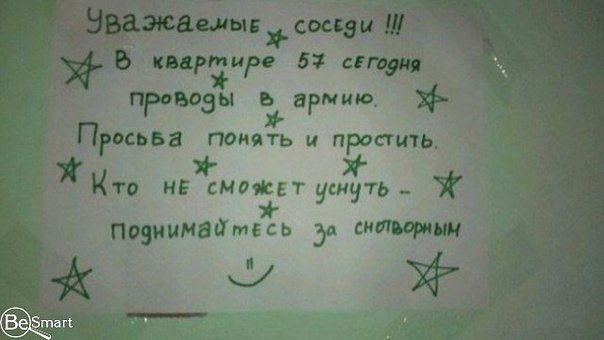 Уважаемые соседи !!!
В квартире 57 сегодня
проводы в армию.
Просьба понять и простить.
Кто не сможет уснуть -
поднимайтесь за снотворным
BeSmart